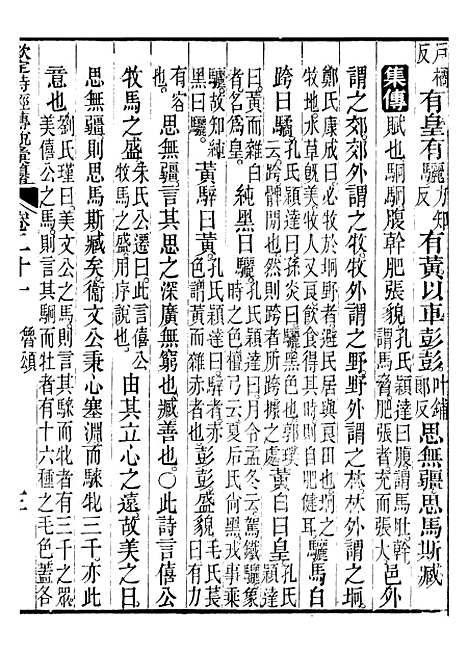 戶橘反有皇有驪力知反有黃以車彭彭叶鋪郎反思無疆思馬斯臧
集傳賦也駉駉腹幹肥張貌孔氏穎達曰腹謂馬肚幹謂馬脅肥張者充而張大邑外
謂之郊郊外謂之牧牧外謂之野野外謂之林林外謂之坰
鄭氏康成曰必牧於坰野者避民居與良田也坰外
水草旣美牧人又良飲食得其時則自肥健耳驪馬白
跨曰驈孔氏穎達曰孫炎曰驈黑色也郭璞云跨髀間也然則跨者所跨據之處黃白曰皇孔氏
曰黃而雜白者名爲皇純黑曰驪孔氏穎達曰月令孟冬云駕鐵驪
時之色檀弓云夏后氏尚黑戎事乘驪故知純黑曰驪黃騂曰黃孔氏穎達曰騂者赤色謂黃而雜赤者也彭彭盛貌毛氏萇曰有力
有容也思無疆言其思之深廣無窮也臧善也○此詩言僖公
牧馬之盛朱氏公遷曰此言僖公牧馬之盛用序說也由其立心之遠故美之曰
思無疆則思馬斯臧矣衞文公秉心塞淵而騋牝三千亦此
意也劉氏瑾曰美文公之馬則言其騋而牝者有三千之眾美僖公之馬則言其駉而牡者有十六種之毛色蓋各
欽定詩經傳說彙纂 卷二十一 魯頌